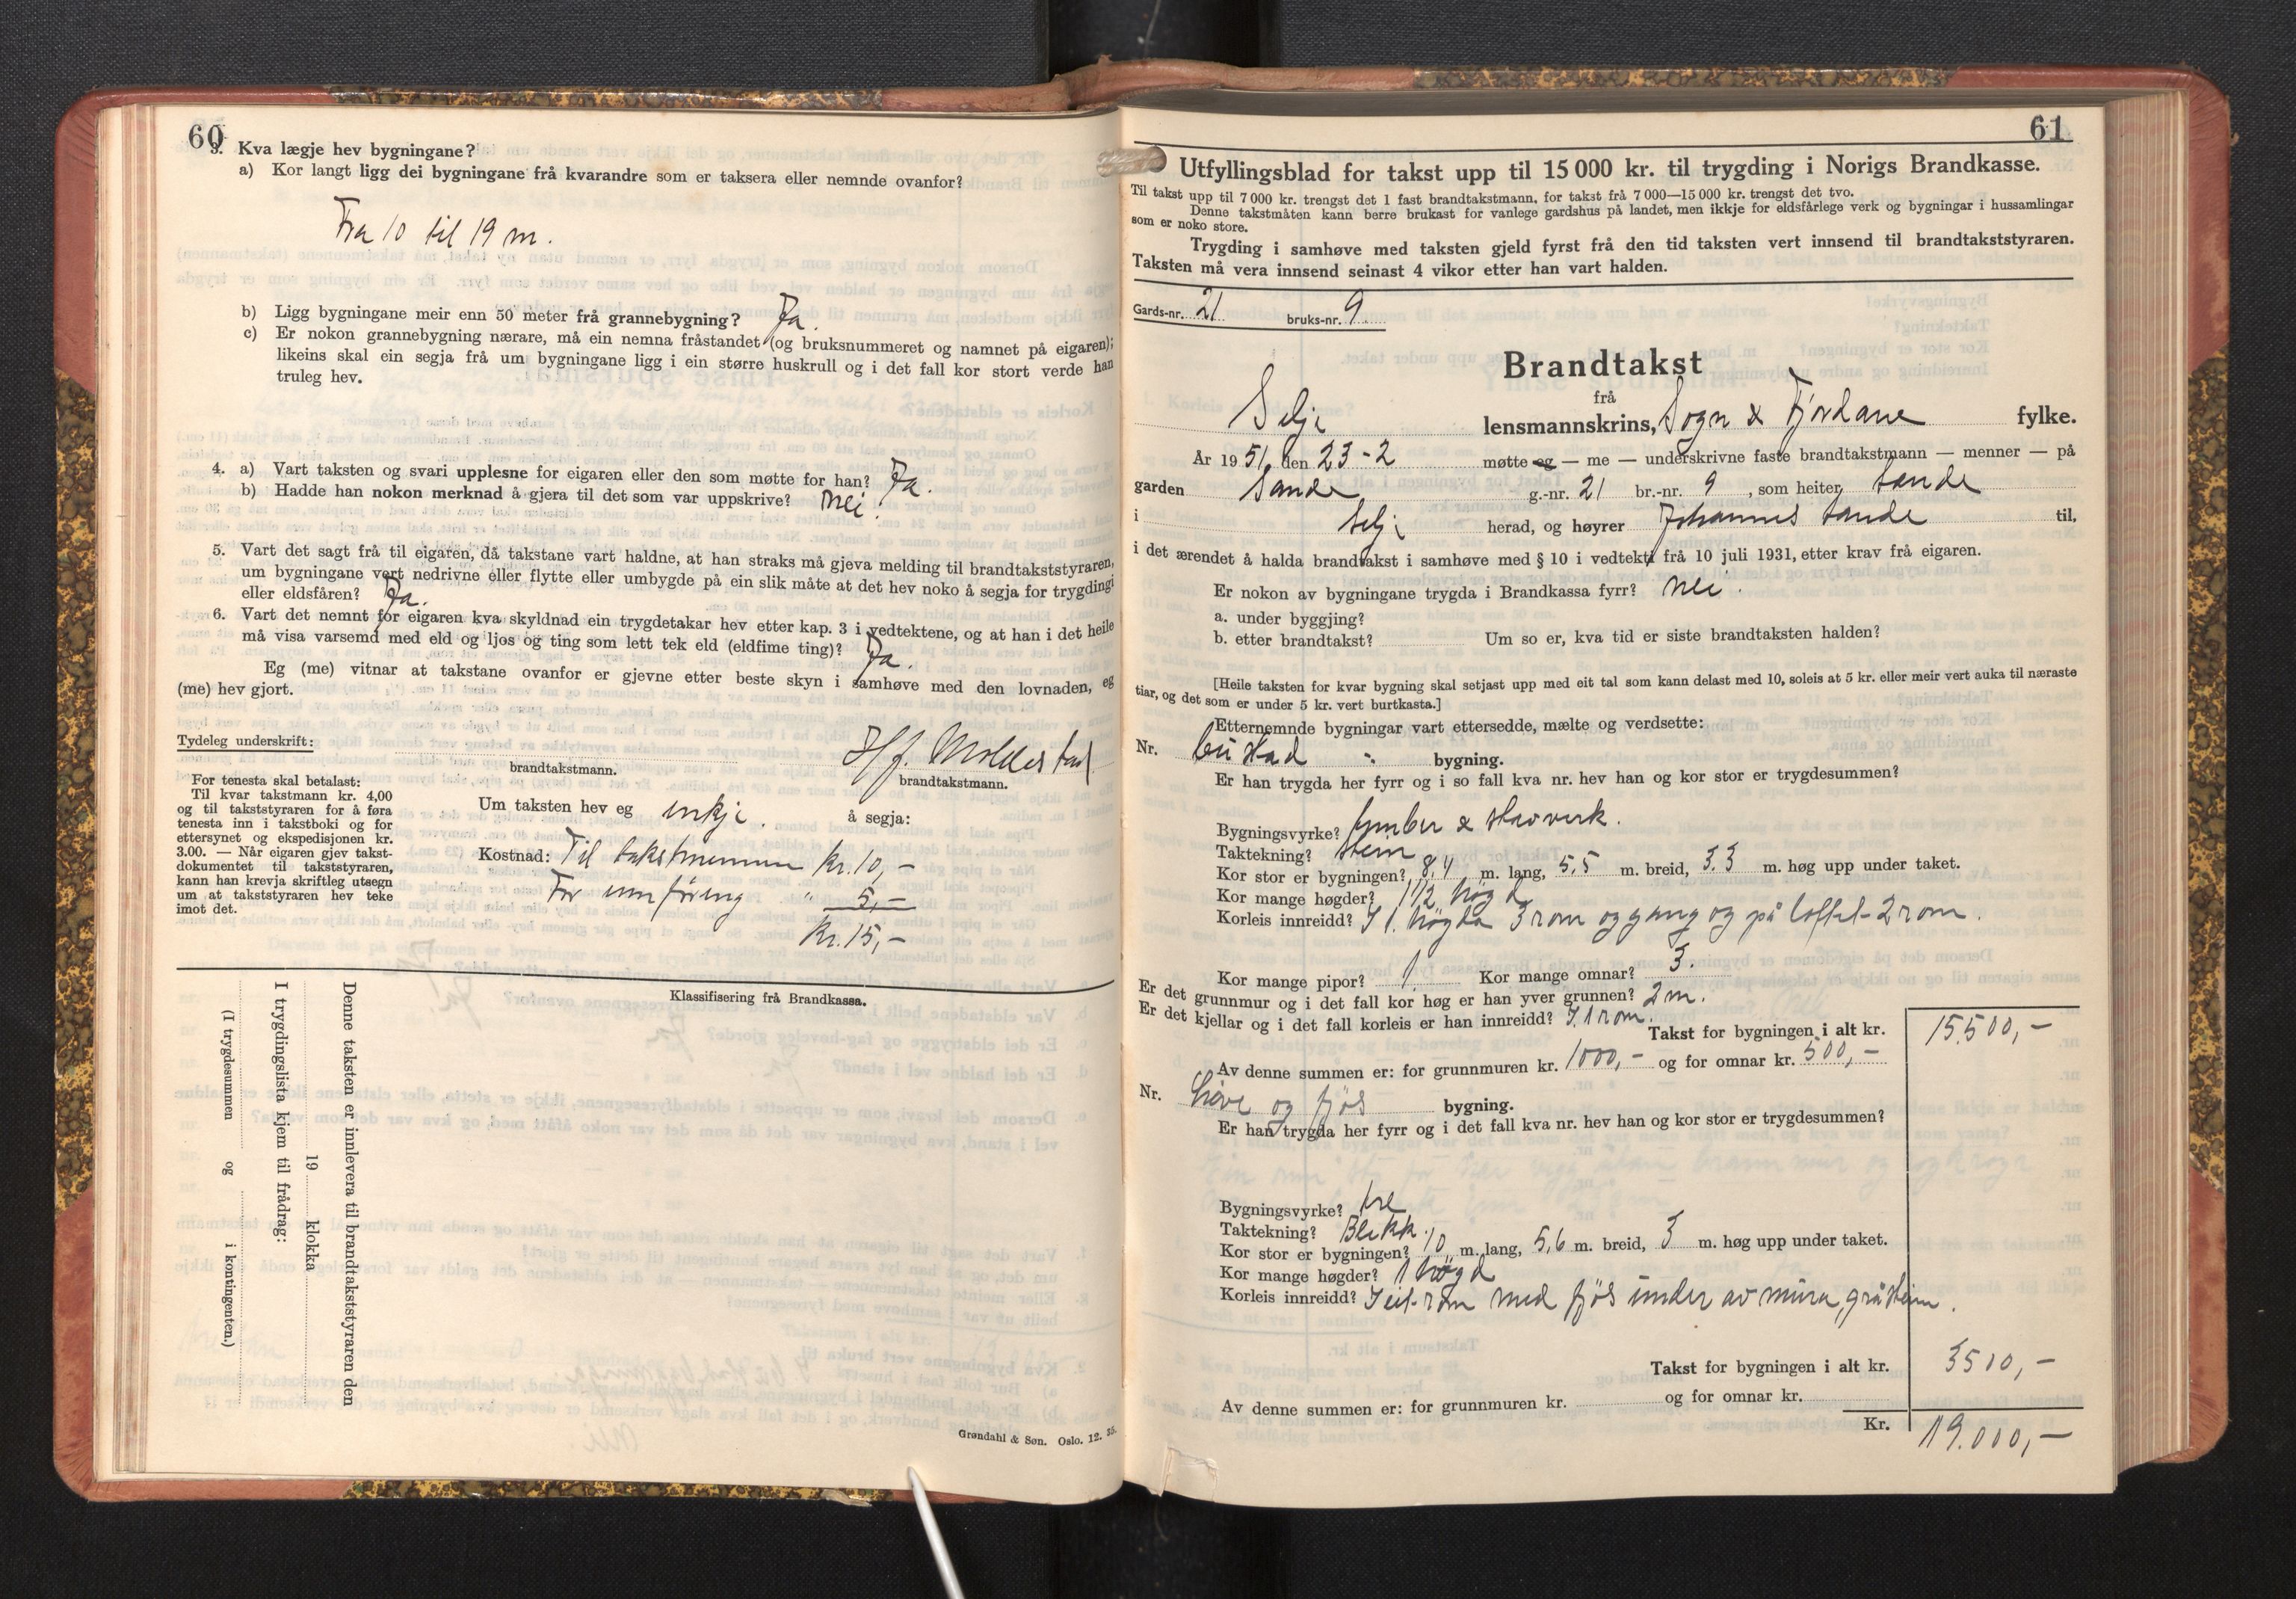 60
3. Kva lægje hev bygningane?
a) Kor langt ligg dei bygningane frå kvarandre som er taksera eller nemnde ovanfor?
Fra 10 til 19 m.
b) Ligg bygningane meir enn 50 meter frå grannebygning? Ja.
c) Er nokon grannebygning nærare, må ein nemna fråstandet (og bruksnummeret og namnet på eigaren);
likeins skal ein segja frå um bygningane ligg i ein større huskrull og i det fall kor stort verde han
truleg hev.
4. a) Vart taksten og svari upplesne for eigaren eller den som møtte for han? Ja.
b) Hadde han nokon merknad å gjera til det som var uppskrive? Nei.
5. Vart det sagt frå til eigaren, då takstane vart haldne, at han straks må gjeva melding til brandtakststyraren,
um bygningane vert nedrivne eller flytte eller umbygde på ein slik måte at det hev noko å segja for trygdingi
eller eldsfåren? Ja.
6. Vart det nemnt for eigaren kva skyldnad ein trygdetakar hev etter kap. 3 i vedtektene, og at han i det heile
må visa varsemd med eld og ljos og ting som lett tek eld (eldfime ting)? Ja.
Eg (me) vitnar at takstane ovanfor er gjevne etter beste skyn i samhøve med den lovnaden, eg
(me) hev gjort.
Tydeleg underskrift:
brandtakstmann.
H. J. Moldestad
brandtakstmann.
For tenesta skal betalast:
Til kvar takstmann kr. 4,00
og til takststyraren for å føra
tenesta inn i takstboki og for
ettersynet og ekspedisjonen kr.
3.00. — Når eigaren gjev takst-
dokumentet til takststyraren,
kann han krevja skriftleg utsegn
um at takststyraren hev teke
imot det.
Um taksten hev eg inkje. å segja:
Kostnad: Til takstmennene Kr. 10,-
For innføring " 5,-
Kr. 15,-
Klassifisering frå Brandkassa.
Denne taksten er innlevera til brandtakststyraren den
19 klokka
I trygdingslista kjem til frådrag:
(I trygdesummen og i kontingenten.)
Grøndahl & Søn. Oslo. 12. 35.
61
Utfyllingsblad for takst upp til 15 000 kr. til trygding i Norigs Brandkasse.
Til takst upp til 7 000 kr. trengst det 1 fast brandtakstmann, for takst frå 7 000—15 000 kr. trengst det tvo.
Denne takstmåten kann berre brukast for vanlege gardshus på landet, men ikkje for eldsfårlege verk og bygningar i hussamlingar
som er noko store.
Trygding i samhøve med taksten gjeld fyrst frå den tid taksten vert innsend til brandtakststyraren.
Taksten må vera innsend seinast 4 vikor etter han vart halden.
Gards-nr. 21 bruks-nr. 9.
Brandtakst
frå
Selje lensmannskrins, Sogn & Fjordane fylke.
År 1951 den 23-2 møtte eg — me — underskrivne faste brandtakstmann — menner — på
garden Sande g.-nr. 21 br.-nr. 9, som heiter Sande
i Selje herad, og høyrer Johannes Sande til,
i det ærendet å halda brandtakst i samhøve med § 10 i vedtekti frå 10 juli 1931, etter krav frå eigaren.
Er nokon av bygningane trygda i Brandkassa fyrr? Nei.
a. under byggjing?
b. etter brandtakst? Um so er, kva tid er siste brandtaksten halden?
[Heile taksten for kvar bygning skal setjast upp med eit tal som kann delast med 10, soleis at 5 kr. eller meir vert auka til næraste
tiar, og det som er under 5 kr. vert burtkasta.]
Etternemnde bygningar vart ettersedde, mælte og verdsette:
Nr. Bustad " bygning.
Er han trygda her fyrr og i so fall kva nr. hev han og kor stor er trygdesummen?
Bygningsvyrke? Tømber & stavverk.
Taktekning? Stein
Kor stor er bygningen? 8,4 m. lang, 5,5 m. breid, 3.3 m. høg upp under taket.
Kor mange høgder? 1 1/2 høgd
Korleis innreidd? I 1. høgda 3 rom og gang og på loftet 2 rom.
Kor mange pipor? 1. Kor mange omnar? 3.
Er det grunnmur og i det fall kor høg er han yver grunnen? 2 m.
Er det kjellar og i det fall korleis er han innreidd? I 1 rom.
Takst for bygningen i alt kr. 15.500,-
Av denne summen er: for grunnmuren kr. 1000,- og for omnar kr. 500,-
Nr. Løe og fjøs bygning.
Er han trygda her fyrr og i det fall kva nr. hev han og kor stor er trygdesummen?
Bygningsvyrke? tre
Taktekning? Blekk.
Kor stor er bygningen? 10 m. lang, 5,6 m. breid, 3 m. høg upp under taket.
Kor mange høgder? 1 høgd
Korleis innreidd? I eit rom med fjøs under av mura gråstein.
Takst for bygningen i alt kr. 3500,-
Av denne summen er: for grunnmuren kr. og for omnar kr.
Kr. 19.000,-